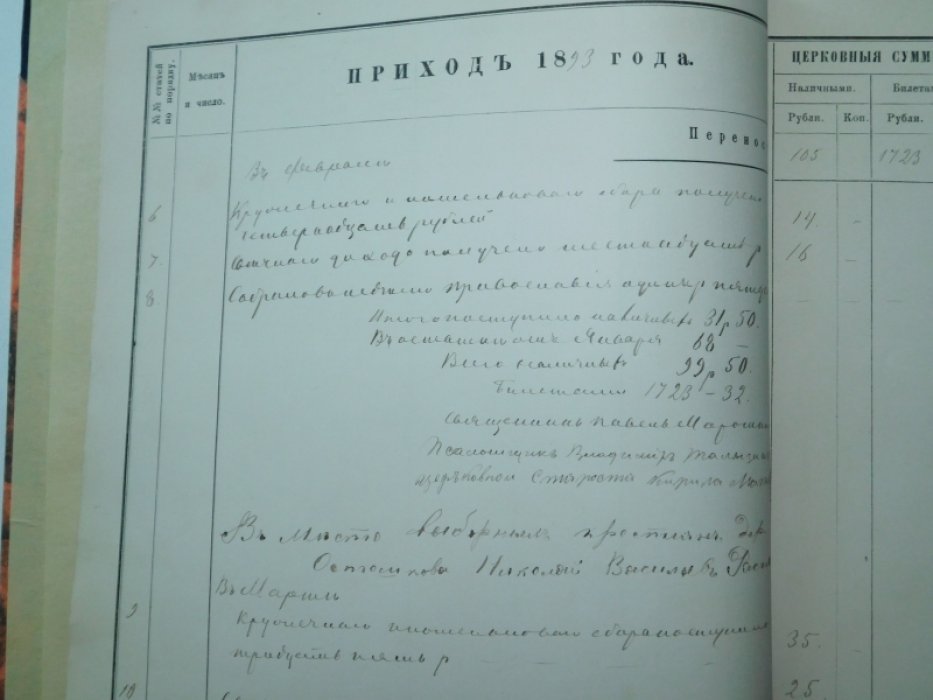 №№ статей по порядку.
Мѣсяцъ и число.
ПРИХОДЪ 1893 года.
ЦЕРКОВНЫЯ СУММ
Наличными.
Билета
Рубли.
Коп.
Рубли.
Перенос
105
1723
Въ Февралѣ
6
Кружечнаго и кошельковаго сбора получено
14.
четырнадцать рублей
7.
Свѣчнаго дохода получено шестнадцать р
16
8
православія одинъ р пятьд
Итого поступило наличными 31 р 50.
Въ остаткѣ отъ Января 68 –
Всего наличными 99 р 50.
Билетами 1723 – 32.
Священникъ Павелъ
Псаломщикъ Владиміръ
Церковной Староста Кирила
Въ мѣсто выборныхъ крестьянъ дер
Николай Васильевъ
Въ Мартѣ
9
Кружечнаго и кошельковаго сбора поступило
35.
тридцать пять р
10
25